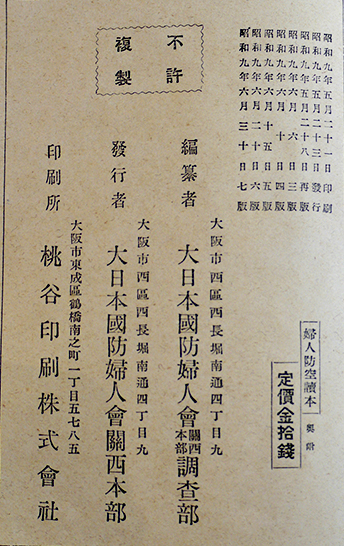 昭和九年五月二十一日印刷
昭和九年五月二十三日發行
昭和九年五月二十八日再版
昭和九年六月六日三版
昭和九年六月十日四版
昭和九年六月十五日五版
昭和九年六月二十日六版
昭和九年六月三十日七版
婦人防空讀本
定價金拾錢
不許
複製
大阪市西區西長堀南通四丁目九
編纂者 大日本國防婦人會關西本部調查部
大阪市西區西長堀南通四丁目九
發行者 大日本國防婦人會關西本部
大阪市東成區鶴橋南之町一丁目五七八五
印刷所 桃谷印刷株式會社